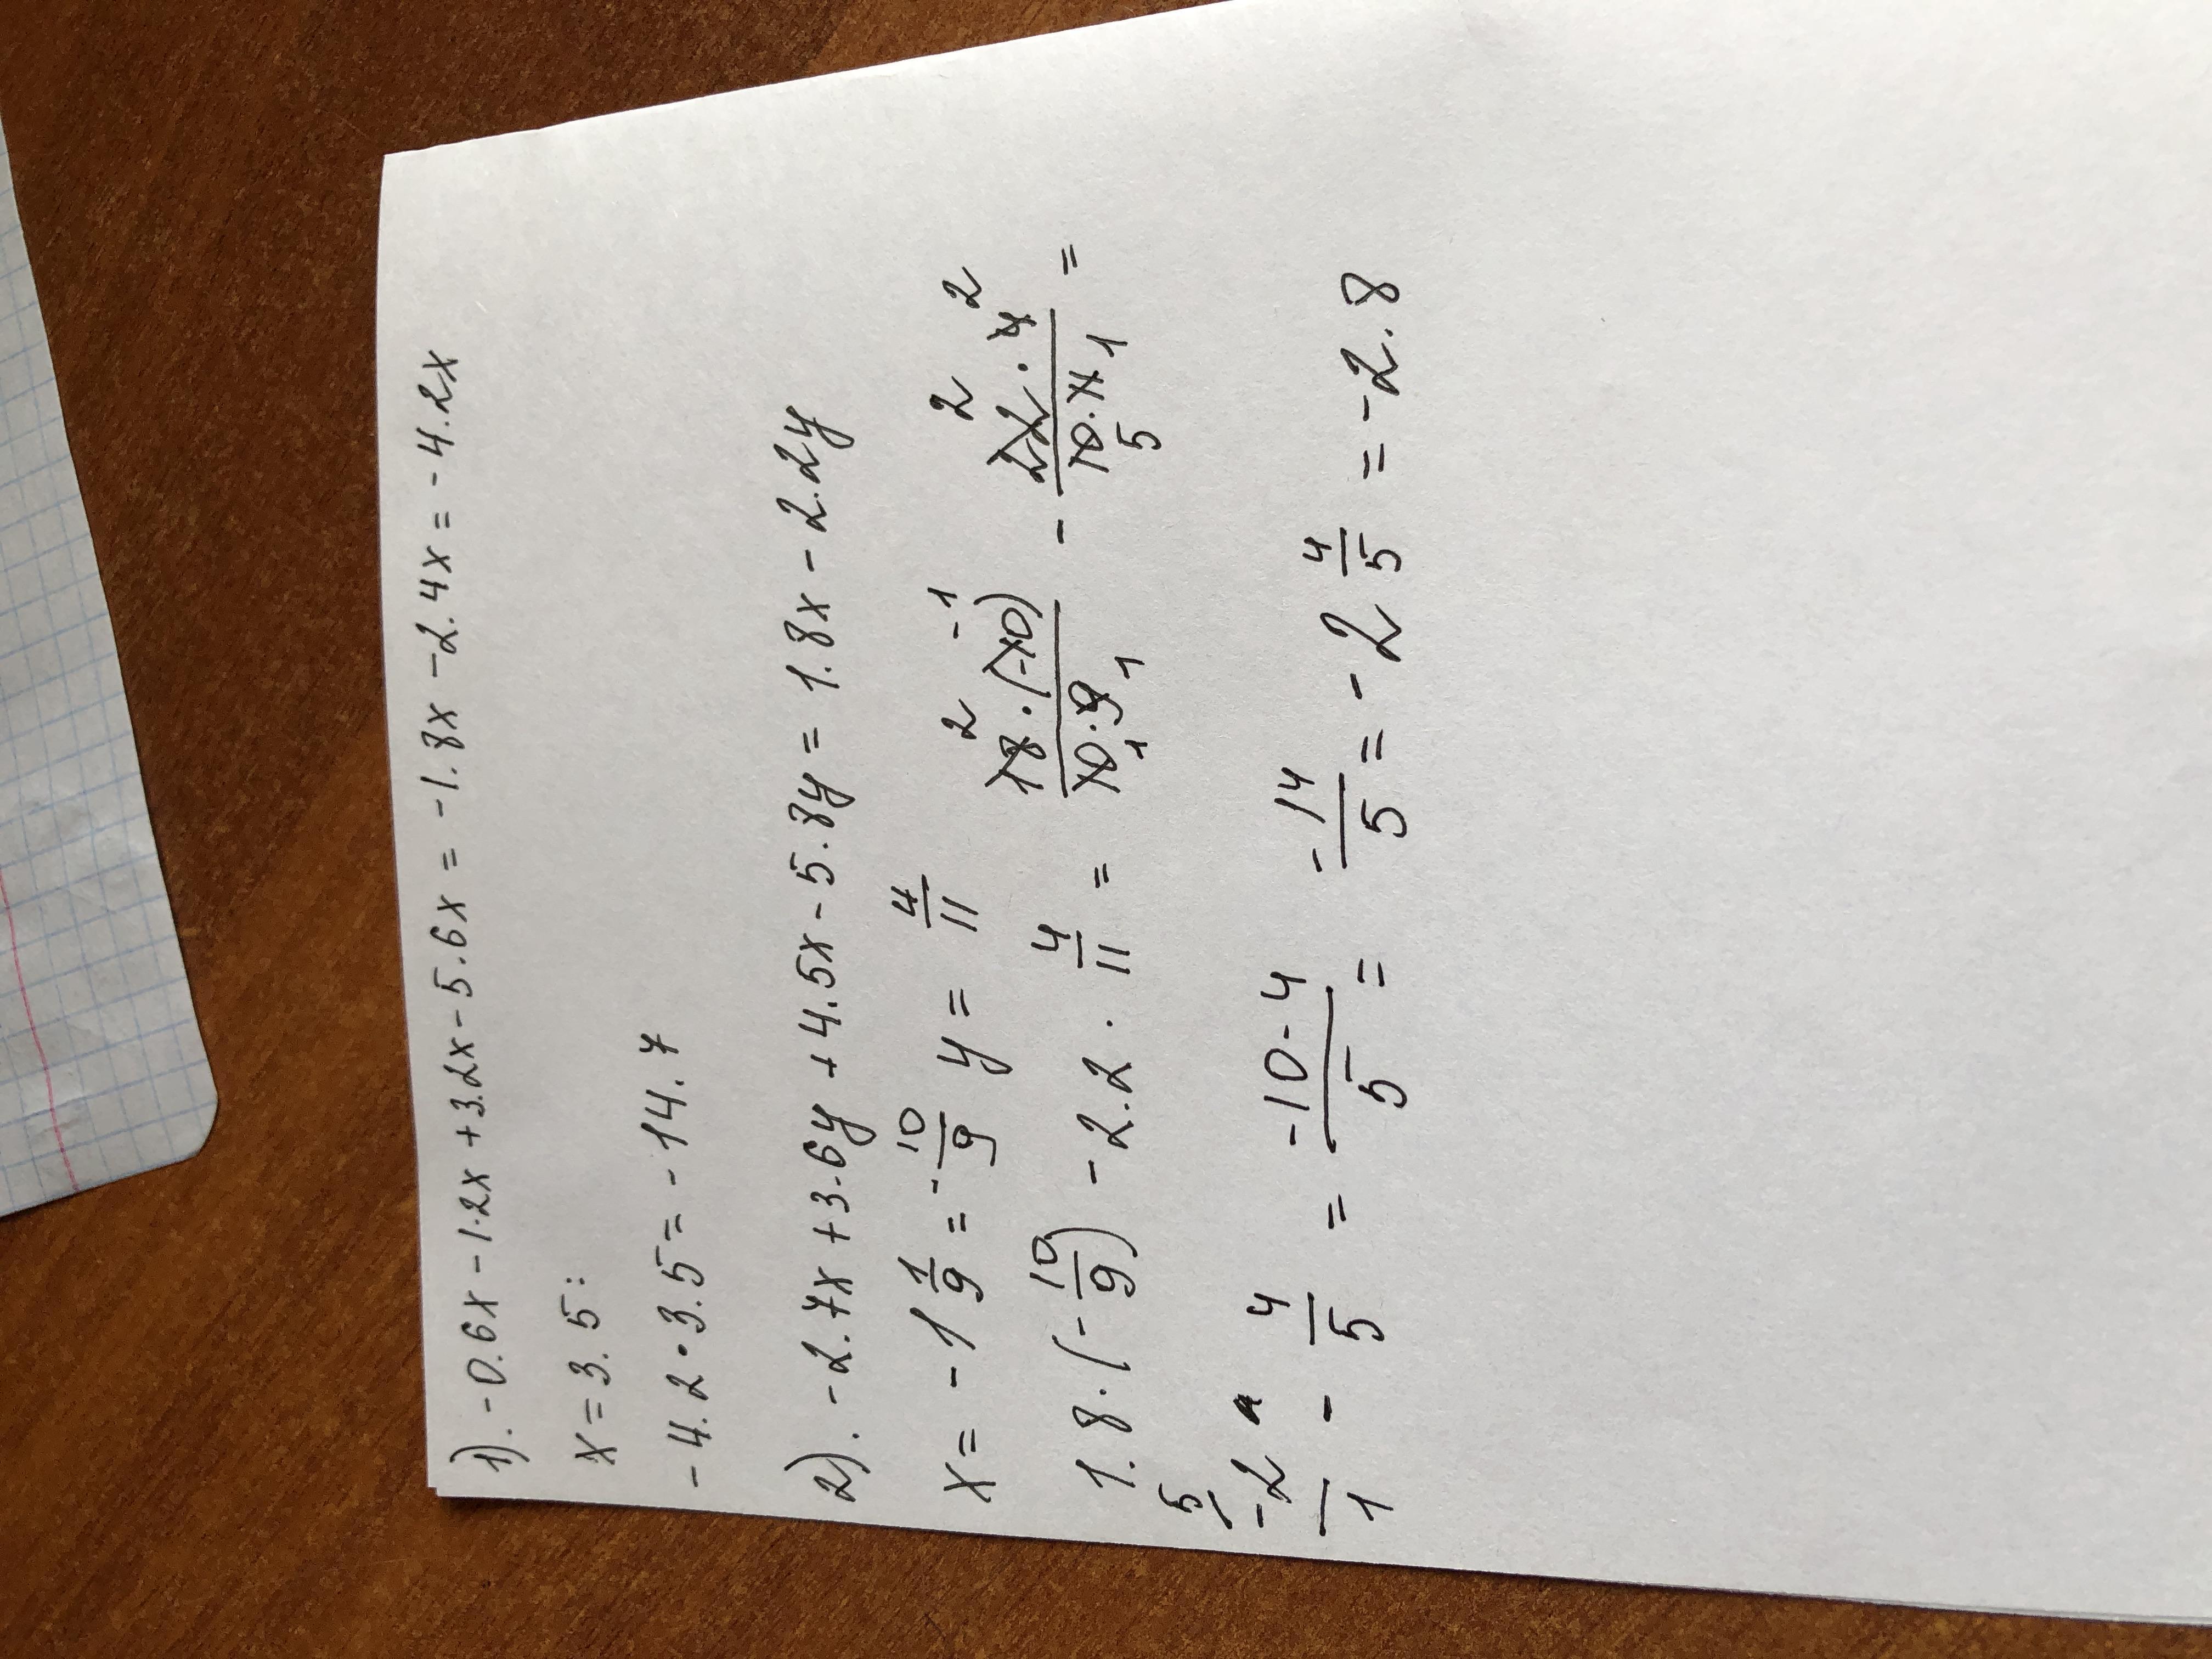 1). -0.6x - 1.2x + 3.2x - 5.6x = -1.8x - 2.4x = -4.2x
x = 3.5:
-4.2 · 3.5 = -14.7
2). -2.7x + 3.6y + 4.5x - 5.8y = 1.8x - 2.2y
x = -1 1/9 = -10/9 y = 4/11
1.8 · (-10/9) - 2.2 · 4/11 = 18 · (-10)/10 · 9 2 -1 1 1 - 22 · 4/10 · 11 2 2 5 1 =
5/ -2/1 - 4/5 = -10-4/5 = -14/5 = -2 4/5 = -2.8